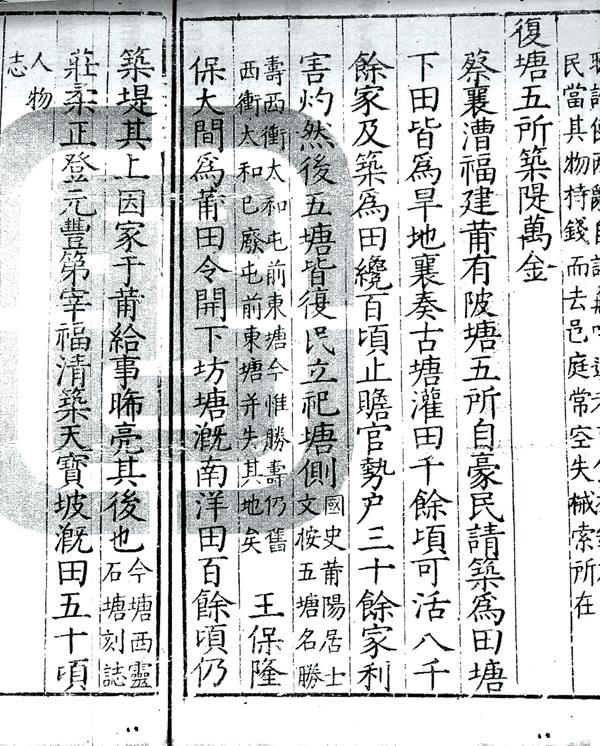 民當其物持錢而去邑庭常空失械索所在
復塘五所築隄萬金
蔡襄漕福建莆有陂塘五所自豪民請築爲田塘
下田皆爲旱地襄奏古塘灌田千餘頃可活八千
餘家及築爲田纔百頃止贍官勢户三十餘家利
害灼然後五塘皆復民立祀塘側
國史莆陽居士
文按五塘名勝
壽西衝太和屯前東塘今惟勝壽仍舊
西衝太和已廢屯前東塘并失其地矣
王保隆
保大間爲莆田令開下坊塘溉南洋田百餘頃仍
築堤其上因家于莆給事晞亮其後也
今塘西靈
石塘刻誌
莊柔正登元豐第宰福清築天寶坡溉田五十頃
人物
志